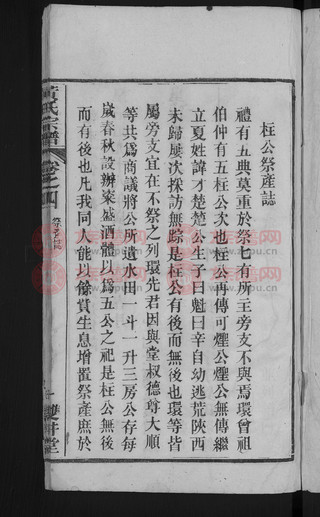 枉公祭產誌
禮有五典莫重於祭七有所主旁支不與焉環曾祖
伯仲有五枉公次也枉公再傳可煋公煋公無傳繼
立夏姓諱才楚楚公生子曰魁曰辛自幼逃荒陝西
未歸屢次採訪無踪是枉公有後而無後也環等皆
屬旁支宜在不祭之列環先君因與堂叔德尊大順
等共為商議將公所遺水田一斗一升三房公存每
歲春秋設辦粢盛酒醴以為五公之祀是枉公無後
而有後也凡我同人能以餘貲生息增置祭產庶於
黃氏宗譜
卷之四
祭產誌
雙井堂
族譜網